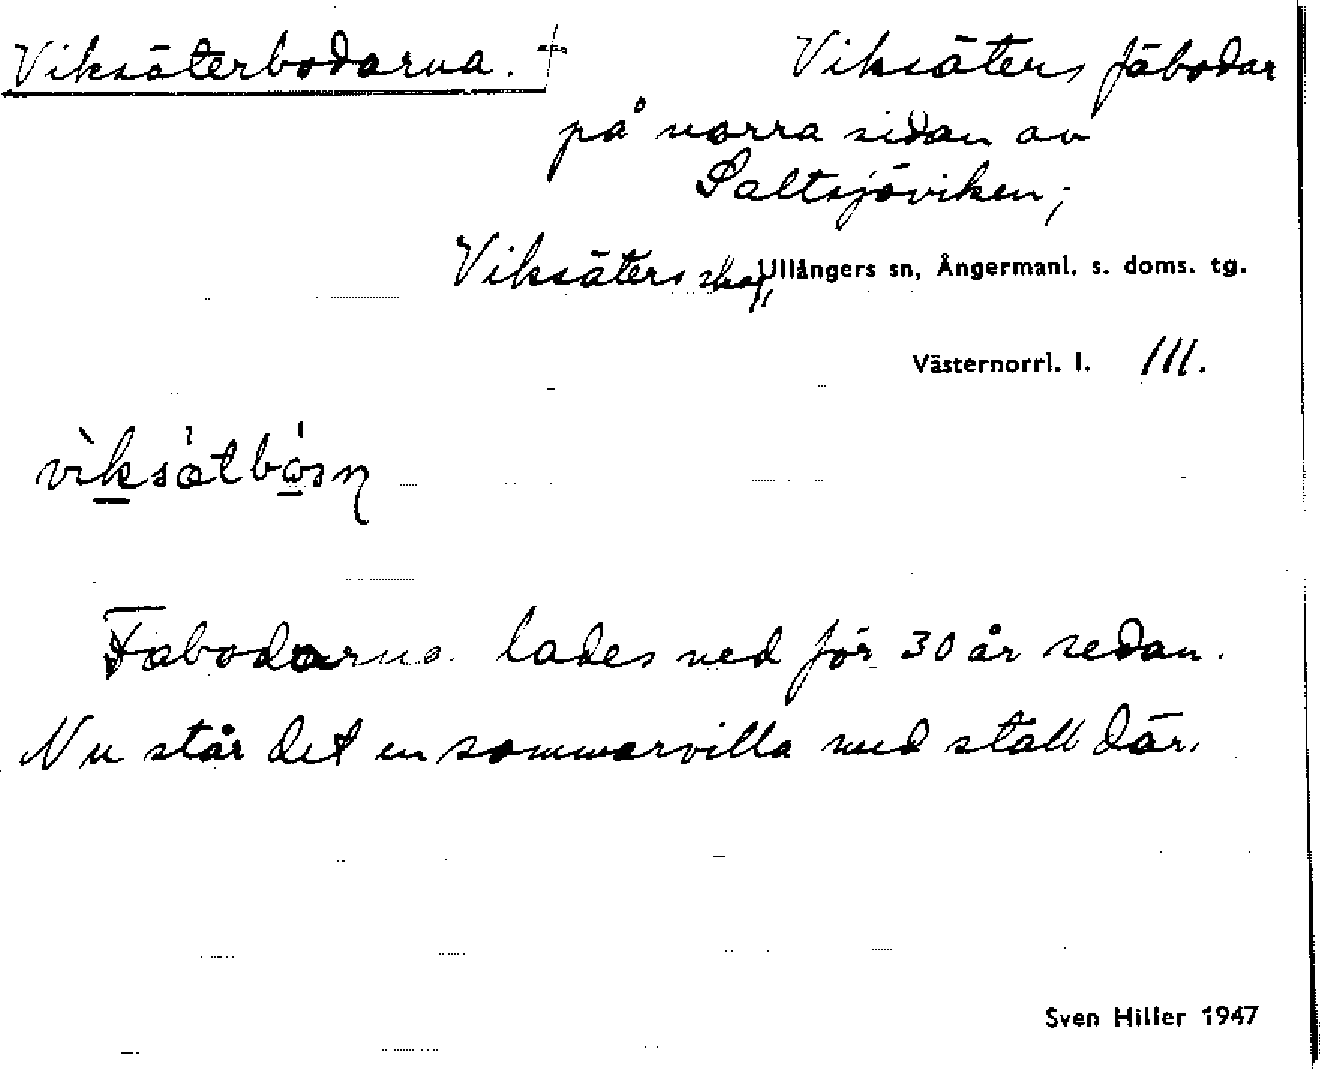 Viksäterbodarna. † Viksäters fäbodar
på norra sidan av
Saltsjöviken;
Viksäters skog, Ullångers sn, Ångermanl. s. doms. tg.
Västernorrl. l. III.
Fäbodarna lades ned för 30 år sedan.
Nu står det en sommarvilla med stall där.
Sven Hiller 1947